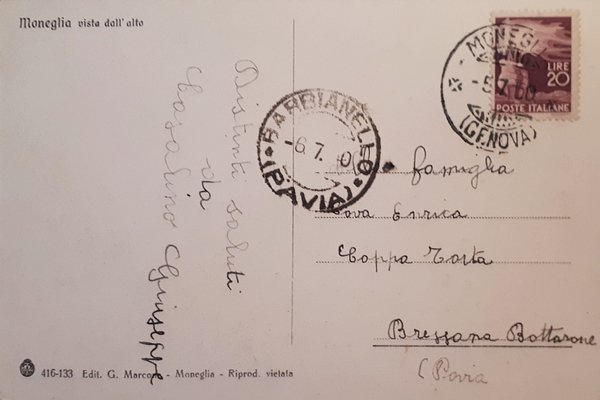 Moneglia vista dall'alto
Distinti saluti
da
Casalino Giuseppe
MONEGLI
-5.7.60
(GENOVA)
LIRE
20
POSTE ITALIANE
BARBIANELLO
-6.7. 0
(PAVIA)
famiglia
Enrica
Coppa Torta
Bressana Bottarone
(Pavia
416-133 Edit. G. Marconi - Moneglia - Riprod. vietata